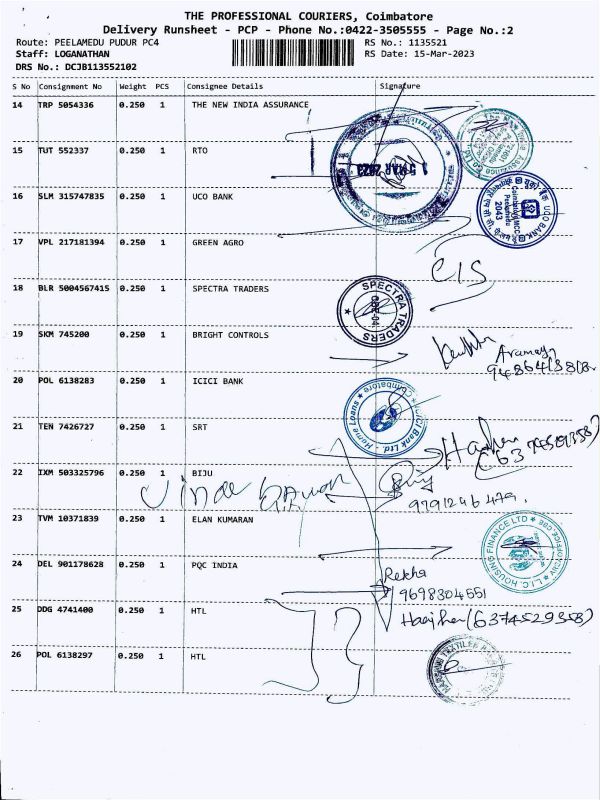 THE PROFESSIONAL COURIERS, Coimbatore
Delivery Runsheet - PCP - Phone No.:0422-3505555 - Page No.:2
Route: PEELAMEDU PUDUR PC4 RS No.: 1135521
Staff: LOGANATHAN RS Date: 15-Mar-2023
DRS No.: DCJB113552102
S No Consignment No Weight PCS Consignee Details Signature
14 TRP 5054336 0.250 1 THE NEW INDIA ASSURANCE
15 TUT 552337 0.250 1 RTO
15 MAR 2023
16 SLM 315747835 0.250 1 UCO BANK
UCO BANK
2043
17 VPL 217181394 0.250 1 GREEN AGRO
CIS
18 BLR 5004567415 0.250 1 SPECTRA TRADERS
SPECTRA TRADERS
19 SKM 745200 0.250 1 BRIGHT CONTROLS
20 POL 6138283 0.250 1 ICICI BANK
ICICI Bank Ltd. Home Loans Coimbatore
21 TEN 7426727 0.250 1 SRT
22 IXM 503325796 0.250 1 BIJU
9791246479.
23 TVM 10371839 0.250 1 ELAN KUMARAN
L.I.C. HOUSING FINANCE LTD
24 DEL 901178628 0.250 1 PQC INDIA
Rekha
9698304551
25 DDG 4741400 0.250 1 HTL
(6374529358)
26 POL 6138297 0.250 1 HTL